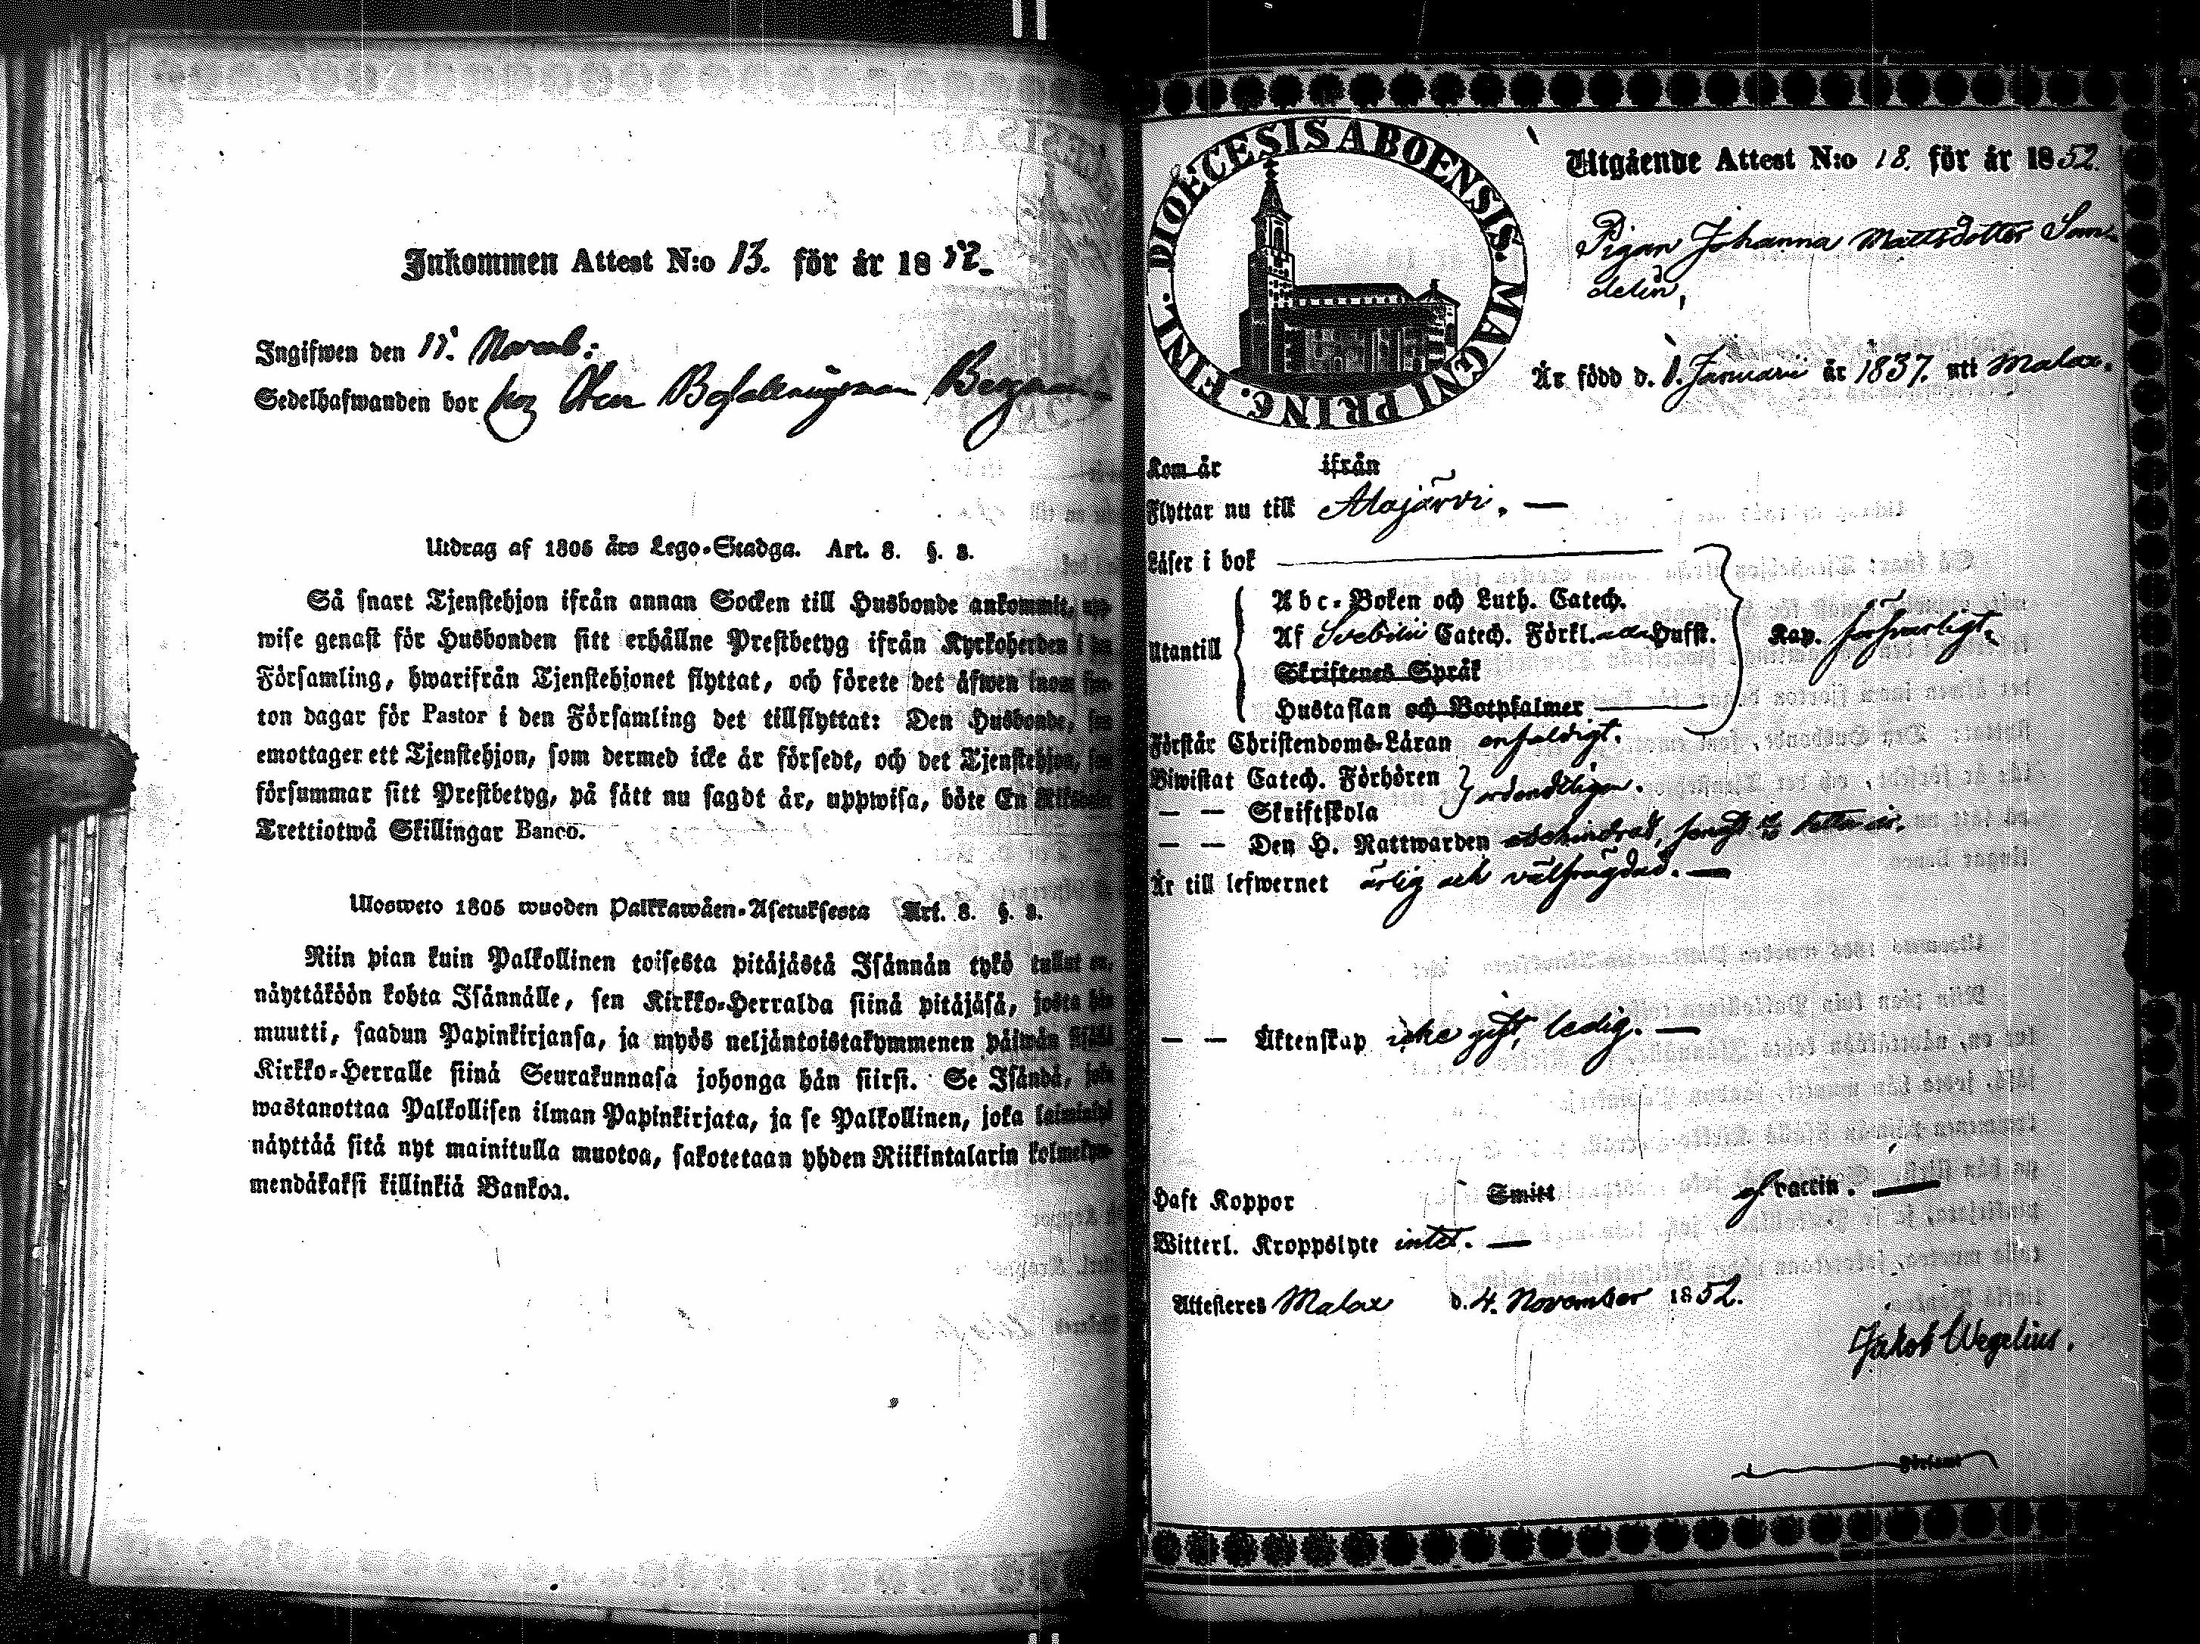 Inkommen Attest N:o 13. för år 1852.
Ingifwen den 15. Novemb:
Sedelhafwanden bor hos Herr Befallningsman Bergman
Utdrag af 1805 års Lego-Stadga. Art. 8. §. 2.
Så snart Tjenstehjon ifrån annan Socken till Husbonde ankommit, upp-
wise genast för Husbonden sitt erhållne Prestbetyg ifrån Kyrkoherden i den
Församling, hwarifrån Tjenstehjonet flyttat, och förete det äfwen inom fjor-
ton dagar för Pastor i den Församling det tillflyttat: Den Husbonde, som
emottager ett Tjenstehjon, som dermed icke är försedt, och det Tjenstehjon, som
försummar sitt Prestbetyg, på sätt nu sagdt är, uppwisa, böte En Riksdaler
Trettiotwå Skillingar Banco.
Ulosweto 1805 wuoden Palkkawäen-Asetuksesta Art. 8. §. 2.
Niin pian kuin Palkollinen toisesta pitäjästä Isännän tykö tullut on,
näyttäköön kohta Isännälle, sen Kirkko-Herralda siinä pitäjäsä, josta hän
muutti, saadun Papinkirjansa, ja myös neljäntoistakymmenen päiwän sisällä
Kirkko-Herralle siinä Seurakunnasa johonga hän siirsi. Se Isändä, joka
wastanottaa Palkollisen ilman Papinkirjata, ja se Palkollinen, joka laiminlyö
näyttää sitä nyt mainitulla muotoa, sakotetaan yhden Riikintalarin kolmekym-
mendäkaksi killinkiä Bankoa.
DIOECESIS ABOENSIS. MAGNI PRINC. FINL.
Utgående Attest N:o 18. för år 1852.
Pigan Johanna Mattsdotter San-
delin,
Är född d. 1. Januarii år 1837. uti Malax.
Kom år ifrån
Flyttar nu till Alajärvi. —
Läser i bok
Utantill
Abc-Boken och Luth. Catech.
Af Svebilii Catech. Förkl. Husst.
Skriftenes Språk
Hustaflan och Botpsalmer
Kap. försvarligt.
Förstår Christendoms-Läran enfaldigt.
Biwistat Catech. Förhören
— — Skriftskola
ordentligen.
— — Den H. Nattwarden obehindrad, detta år.
Är till lefwernet ärlig och välfrägdad. —
— — Äktenskap icke gift, ledig. —
Haft Koppor Smitt af vaccin. —
Witterl. Kroppslyte intet. —
Attesteres Malax d. 4. November 1852.
Jakob Wegelius.